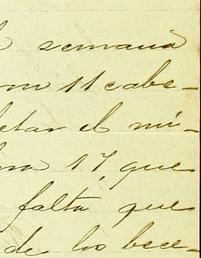 semana
11 cabe-
etar el mí-
17, que
falta que
de los bece-